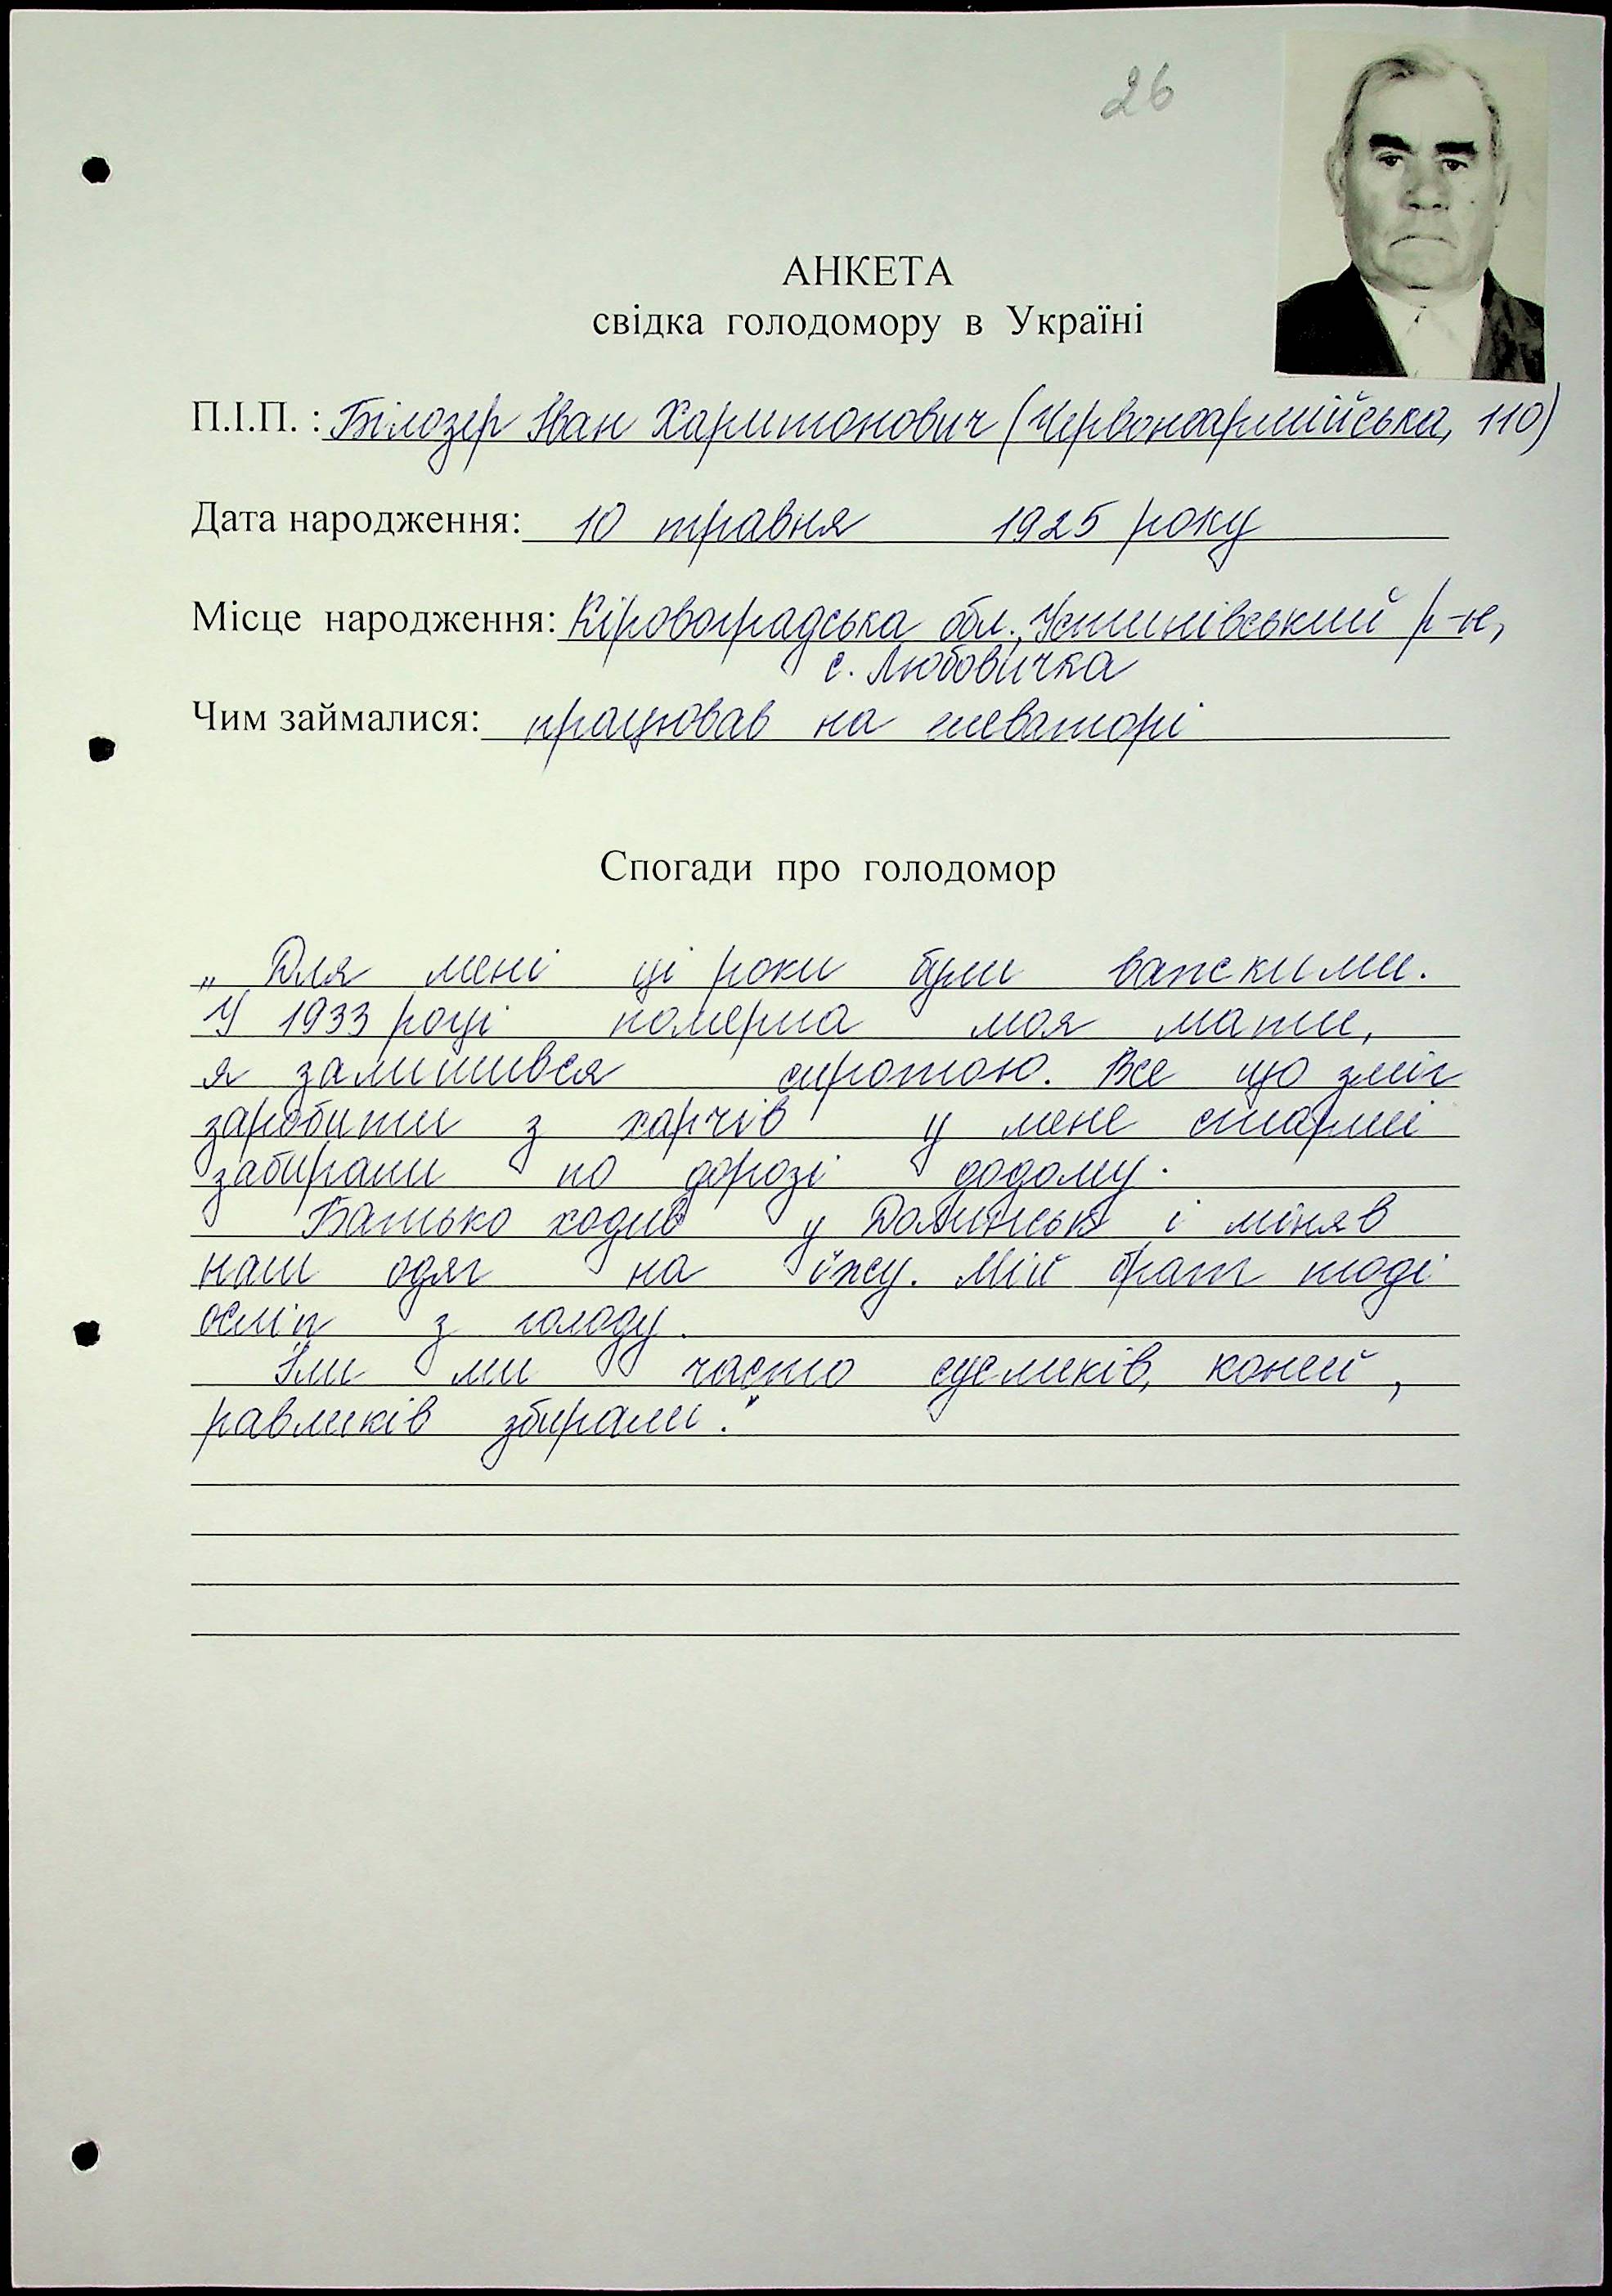 26
АНКЕТА
свідка голодомору в Україні
П.І.П. : Білозер Іван Харитонович (Червоноармійська, 110)
Дата народження: 10 травня 1925 року
Місце народження: Кіровоградська обл., Устинівський р-н,
с. Любовичка
Чим займалися: працював на елеваторі
Спогади про голодомор
„Для мені ці роки були важкими.
У 1933 році померла моя мати,
я залишився сиротою. Все що зміг
заробити з харчів у мене старші
забирали по дорозі додому.
Батько ходив у Долинськ і міняв
наш одяг на їжу. Мій брат тоді
осліп з голоду.
Їли ми часто сусликів, коней,
равликів збирали."